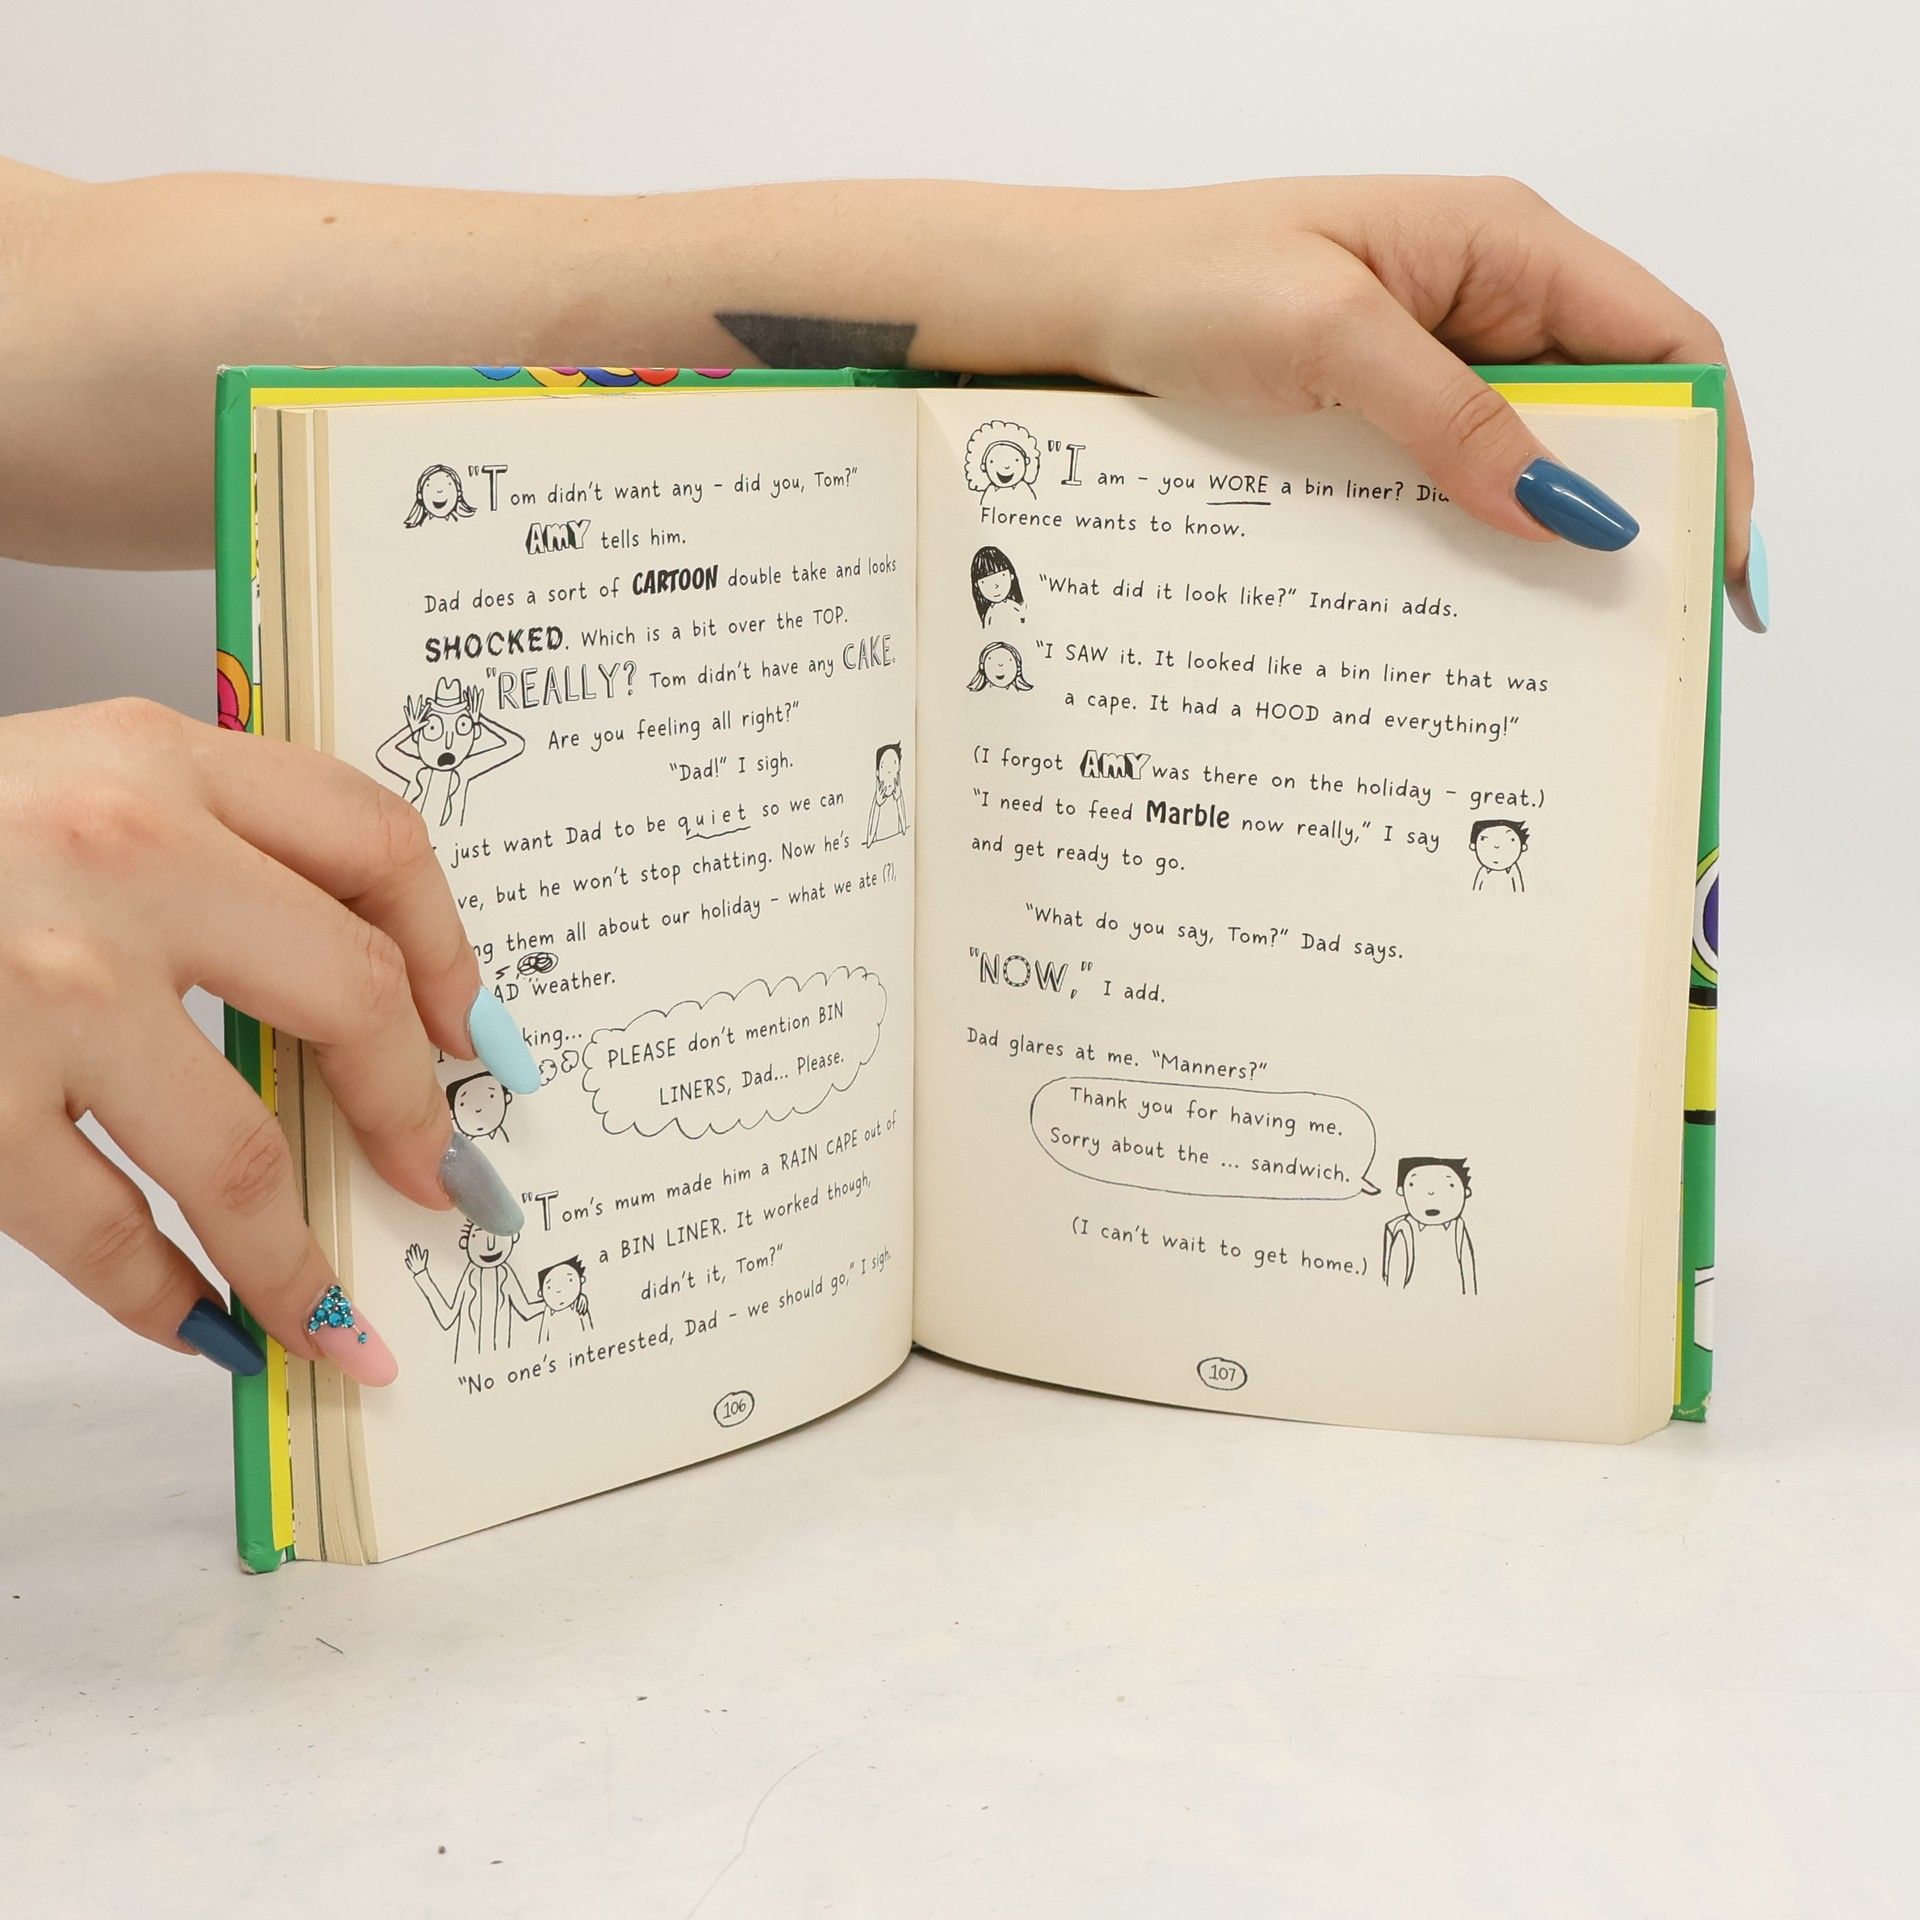 "Tom didn't want any – did you, Tom?"
AMY tells him.
Dad does a sort of CARTOON double take and looks
SHOCKED. Which is a bit over the TOP.
"REALLY? Tom didn't have any CAKE.
Are you feeling all right?"
"Dad!" I sigh.
just want Dad to be quiet so we can
but he won't stop chatting. Now he's
them all about our holiday – what we ate (?),
weather.
PLEASE don't mention BIN
LINERS, Dad... Please.
"Tom's mum made him a RAIN CAPE out of
a BIN LINER. It worked though,
didn't it, Tom?"
"No one's interested, Dad – we should go," I sigh.
106
"I am – you WORE a bin liner?
Florence wants to know.
"What did it look like?" Indrani adds.
"I SAW it. It looked like a bin liner that was
a cape. It had a HOOD and everything!"
(I forgot AMY was there on the holiday – great.)
"I need to feed Marble now really," I say
and get ready to go.
"What do you say, Tom?" Dad says.
"NOW," I add.
Dad glares at me. "Manners?"
Thank you for having me.
Sorry about the ... sandwich.
(I can't wait to get home.)
107